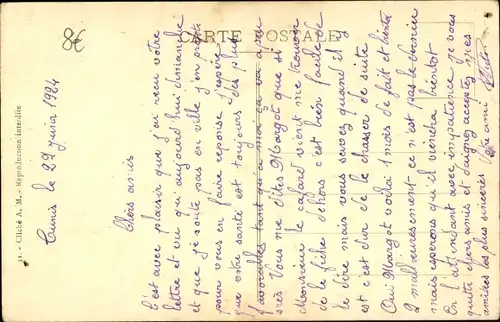 CARTE POSTALE
8€
31. - Cliché A. M. - Reproduction interdite
Tunis le 29 Juin 1924
Chers amis
C'est avec plaisir que j'ai recu votre
lettre et vu qu'aujourd'hui dimanche
et que je reste pas en ville j'en profite
pour vous en faire reponse j'espère
que votre santé est toujours des plus
favorables tant qu'a moi ça va a peu
près Vous me dites Margot que si
Monsieur le cafard vient me trouver
de le fiche dehors c'est bien facile de
le dire mais vous savez quand il y
est c'est dur de le chasser de suite
Oui Margot voila 1 mois de fait et
malheureusement ce n'est pas le dernier
mais esperons qu'il viendra bientot
En attendant avec impatience je vous
quitte chers amis et daignez acceptez mes
amitiés les plus sincères Votre ami